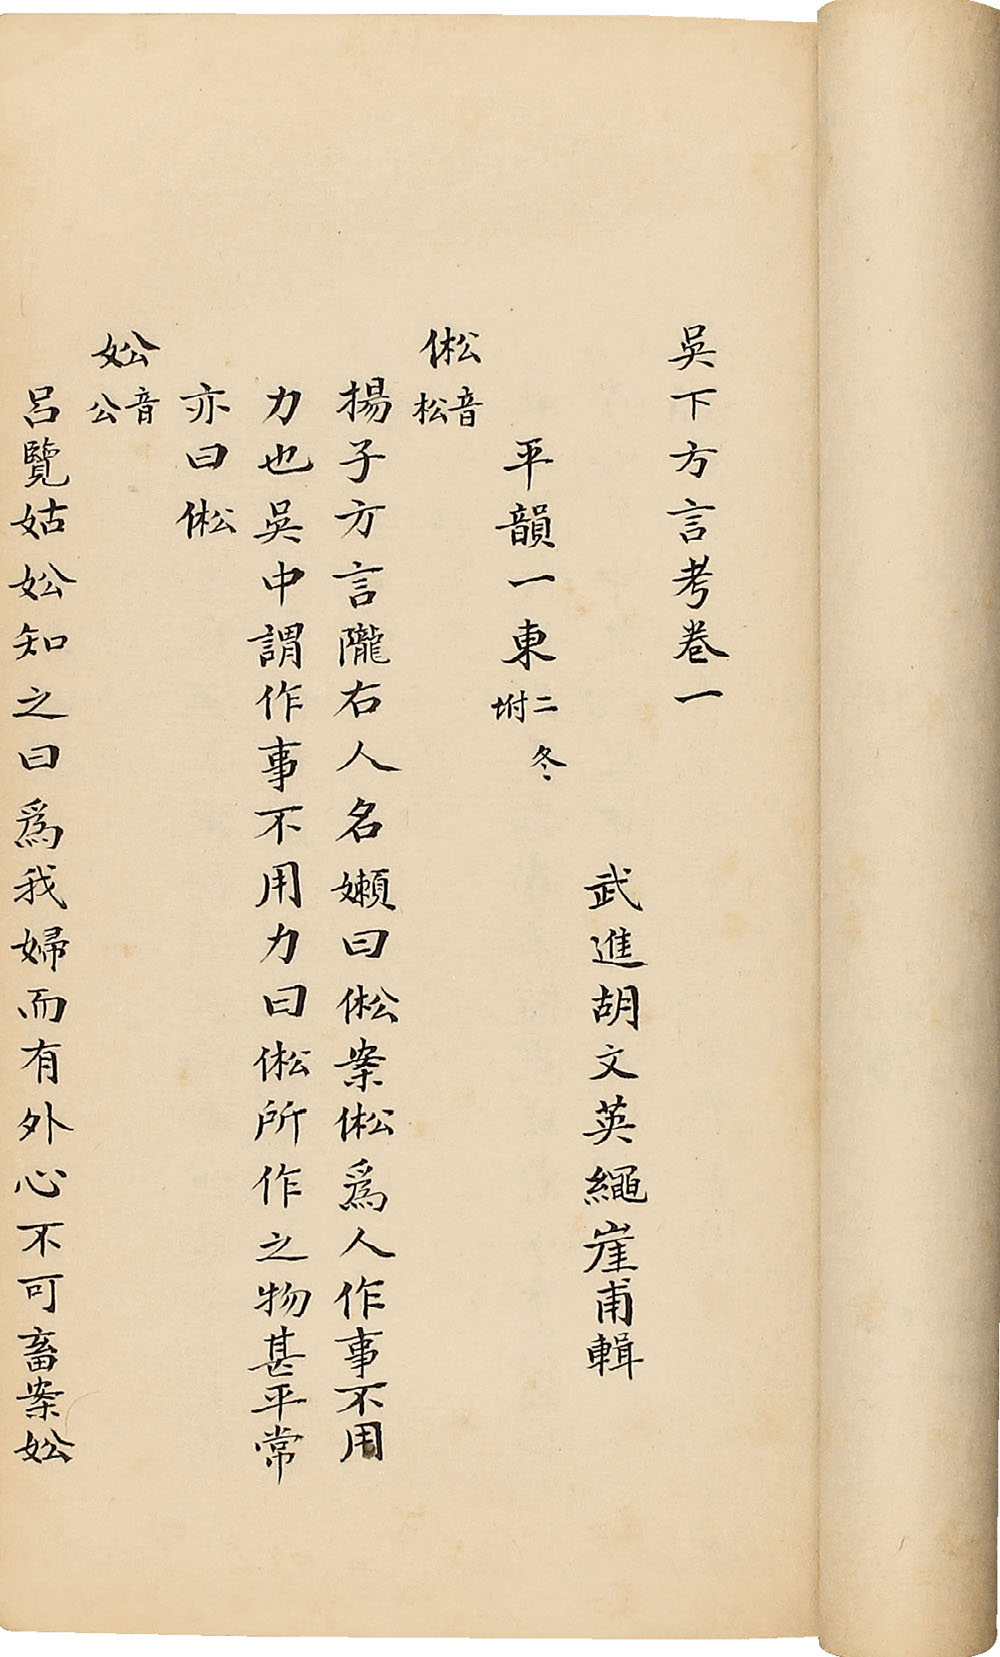 吳下方言考卷一
武進胡文英繩崖甫輯
平韻一東二冬坿
倯音松
揚子方言隴右人名嬾曰倯案倯爲人作事不用
力也吳中謂作事不用力曰倯所作之物甚平常
亦曰倯
妐音公
呂覽姑妐知之曰爲我婦而有外心不可畜案妐